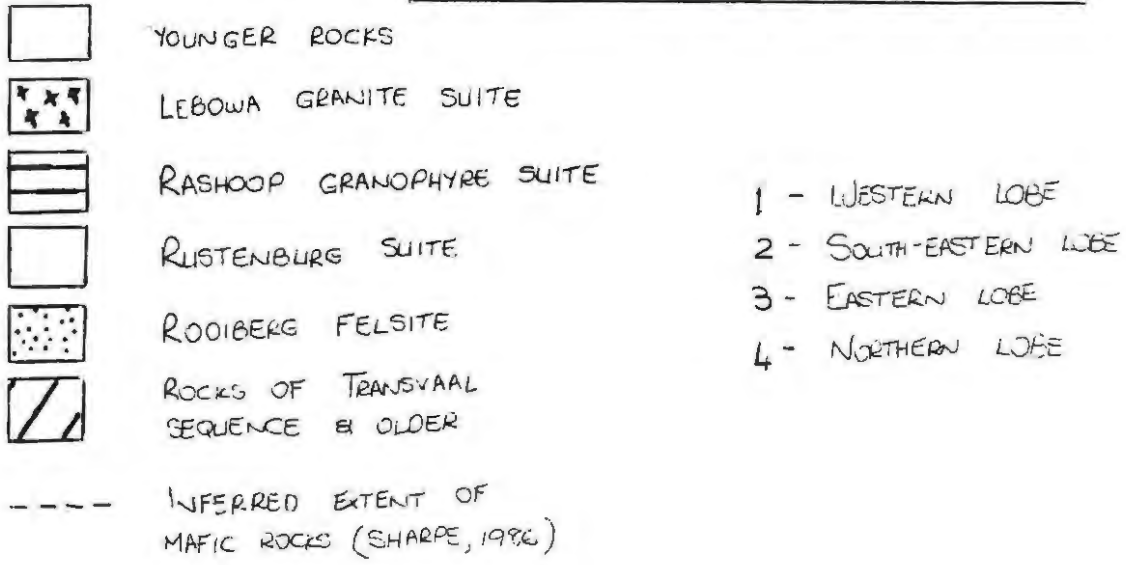 YOUNGER ROCKS
LEBOWA GRANITE SUITE
RASHOOP GRANOPHYRE SUITE
RUSTENBURG SUITE
ROOIBERG FELSITE
ROCKS OF TRANSVAAL
SEQUENCE & OLDER
INFERRED EXTENT OF
MAFIC ROCKS (SHARPE, 1986)
1 - WESTERN LOBE
2 - SOUTH-EASTERN LOBE
3 - EASTERN LOBE
4 - NORTHERN LOBE